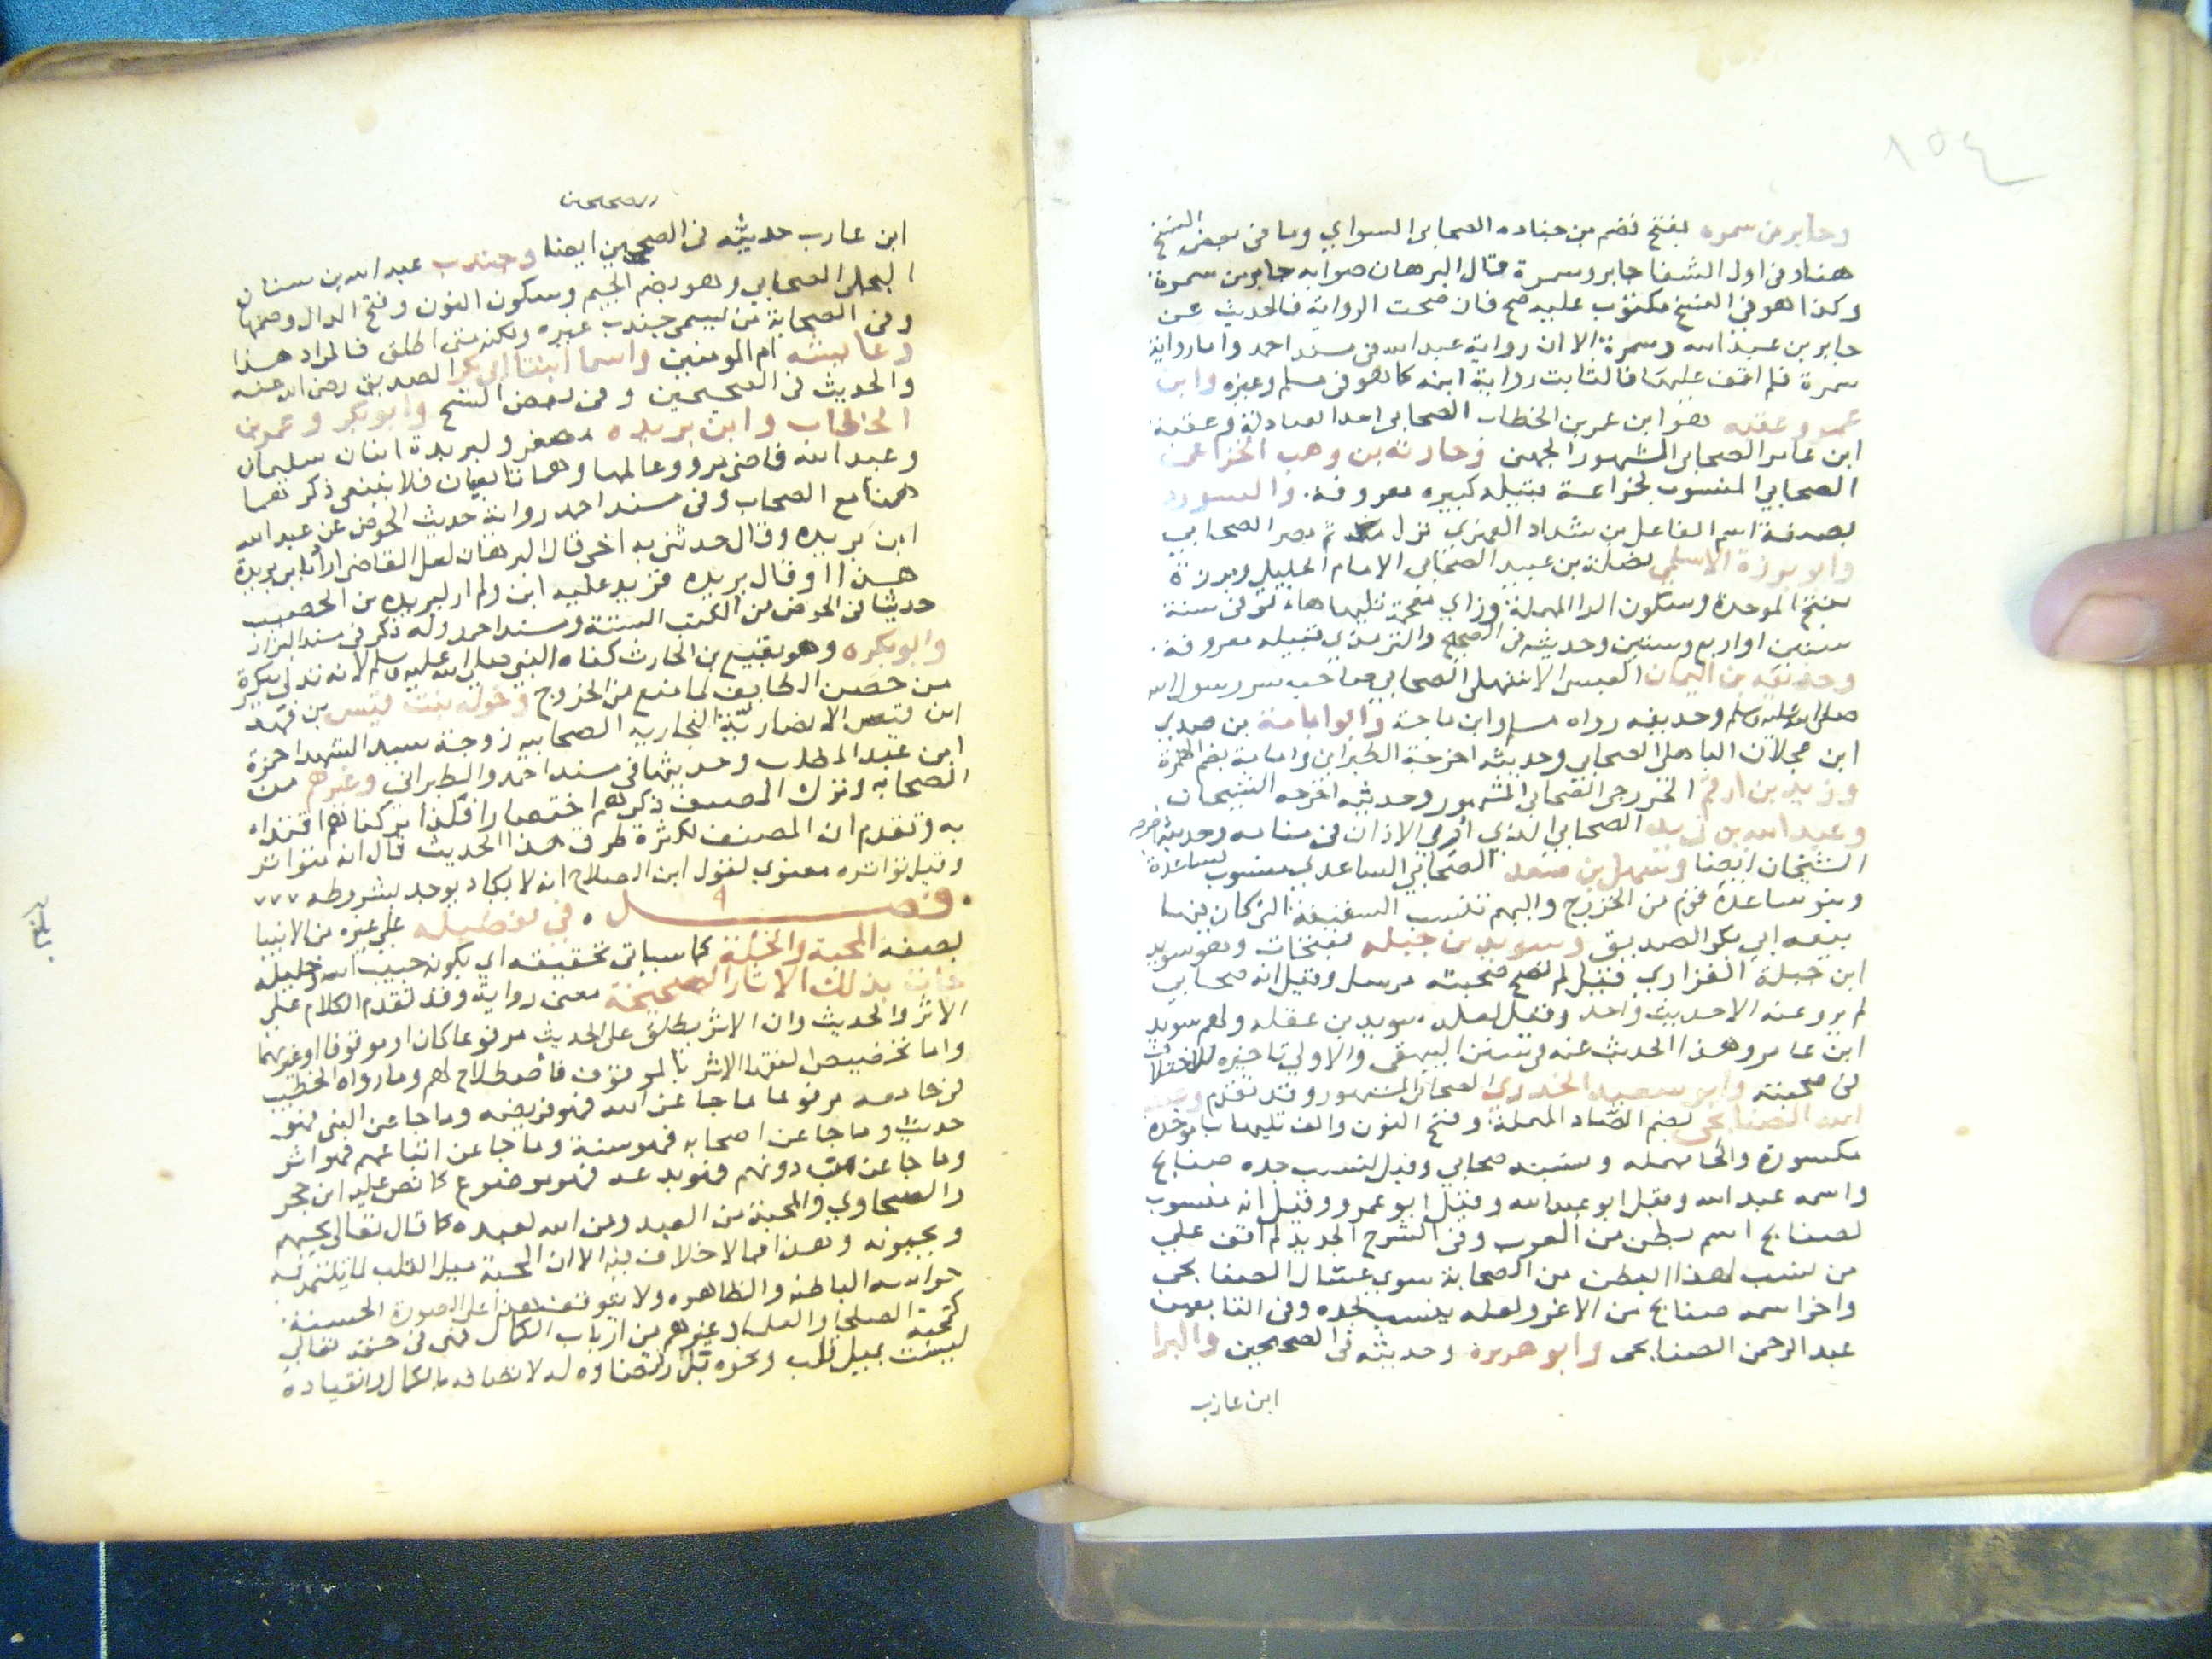 ١٥٤
وجابر بن سمره بفتح فضم بن جناده الصحابي السواي وما في بعض النسخ
هنا وفي اول الشفا جابر وسمرة قال البرهان صوابه جابر بن سمرة
وكذا هو في النسخ مكتوب عليه صح فان صحت الرواية فالحديث عن
جابر بن عبد الله وسمرة الا ان رواية عبد الله في مسند احمد واما رواية
سمرة فلم اقف عليها فالثابت رواية ابنه كما هو في مسلم وغيره وابن
عمر وعقبه هو ابن عمر بن الخطاب الصحابي احد العبادلة وعقبة
ابن عامر الصحابي المشهور الجهني وحارثة بن وهب الخزاعي
الصحابي المنسوب لخزاعة قبيله كبيره معروفة. والمستورد
بصيغة اسم الفاعل بن شداد الفهري نزل ثم بمصر الصحابي
وابو برزة الاسلمي نضلة بن عبيد الصحابي الامام الجليل وبرزة
بفتح الموحدة وسكون الراء المهملة وزاي معجمة تليها هاء توفي سنة
ستين او اربع وستين وحديثه في الصحيح والترمذي قبيله معروفة.
وحذيفه بن اليمان العبسي الاشهلي الصحابي صاحب سر رسول الله
صلى الله عليه وسلم وحديثه رواه مسلم وابن ماجة وابو امامة بن صدي
ابن عجلان الباهلي الصحابي وحديثه اخرجه الطبراني وامامة بضم الهمزة
وزيد بن ارقم الخزرجي الصحابي المشهور وحديثه اخرجه الشيخان
وعبد الله بن زيد الصحابي الذي اري الاذان في منامه وحديثه اخرجه
الشيخان ايضا وسهل بن سعد الصحابي الساعدي منسوب لساعدة
وبنو ساعدة قوم من الخزرج واليهم تنسب السقيفة التي كان فيها
بيعة ابي بكر الصديق وسويد بن جبله بفتحات وهو سويد
ابن جبلة الفزاري فقيل لم تصح صحبته مرسل وقيل انه صحابي
لم يرو عنه الا حديث واحد وقيل لعله سويد بن عقله ولهم سويد
ابن عامر وهذا الحديث عنه في سنن البيهقي والاولي تاخيره للاختلاف
في صحبته وابو سعيد الخدري الصحابي المشهور وقد تقدم وعبد
الله الصنابحي بضم الصاد المهملة وفتح النون والف تليها با موحدة
مكسورة والحا مهمله ونسبته صحابي وقيل لنسب جده صنابح
واسمه عبد الله وقيل ابو عبد الله وقيل ابو عمرو وقيل انه منسوب
لصنابح اسم بطن من العرب وفي الشرح الجديد لم اقف علي
من نسب لهذا البطن من الصحابة سوي عسال الصنابحي
واخر اسمه صنابح بن الاعز ولعله ينسب لجده وفي التابعين
عبد الرحمن الصنابحي وابو هريرة وحديثه في الصحيحين والبرا
ابن عازب
الصحيحين
ابن عازب حديثه في الصحيحين ايضا وجندب عبد الله بن سنان
البجلي الصحابي وهو بضم الجيم وسكون النون وفتح الدال وضمها
وفي الصحابة من يسمي جندب غيره ولكنه متي اطلق فالمراد هذا
وعايشه ام المومنين واسما ابنتا ابي بكر الصديق رضي الله عنه
والحديث في الصحيحين وفي بعض النسخ وابو بكر وعمر بن
الخطاب وابن بريده مصغر ولبريدة ابنان سليمان
وعبد الله قاضي مرو وعالمها وهما تابعيان فلا ينبغي ذكرهما
هنا مع الصحاب وفي مسند احمد رواية حديث الحوض عن عبد الله
ابن بريده وقال حدثني به اخر قال البرهان لعل القاضي اراد ابن بريدة
هذا او قال بريده فزيد عليه ابن ولم ار لبريده بن الحصيب
حديثا في الحوض في الكتب الستة ومسند احمد وله ذكر في مسند البزار
وابو بكره وهو نفيع بن الحارث كناه النبي صلى الله عليه وسلم لانه تدلي ببكرة
من حصن الطايف لما منع من الخروج وخوله بنت قيس بن فهد
ابن قيس الانصارية النجارية الصحابيه زوجة سيد الشهدا حمزة
ابن عبد المطلب وحديثها في مسند احمد والطبراني وغيرهم من
الصحابه وترك المصنف ذكرهم اختصارا فلذا تركناهم اقتداء
به وتقدم ان المصنف لكثرة طرق هذا الحديث قال انه متواتر
وقيل تواتره معنوي لقول ابن الصلاح انه لا يكاد يوجد بشروطه
. فصل . في تفضيله علي غيره من الانبيا
بصفة المحبة والخلة كما سياتي تحقيقه اي بكونه حبيب الله وخليله
جات بذلك الاثار الصحيحة معني رواية وقد تقدم الكلام علي
الاثر والحديث وان الاثر يطلق علي الحديث مرفوعا كان او موقوفا او غيرهما
واما تخصيص الفقها الاثر بالموقوف فاصطلاح لهم وما رواه الخطيب
في جامعه مرفوعا ما جا عن الله فهو فريضه وما جا عن النبي فهو
حديث وما جا عن اصحابه فهو سنة وما جا عن اتباعهم فهو اثر
وما جا عن من دونهم فهو بدعه فهو موضوع كما نص عليه ابن حجر
والسخاوي والمحبة من العبد ومن الله لعبده كما قال تعالي يحبهم
ويحبونه وهذا مما لا خلاف فيه الا ان المحبة ميل القلب لما يلتذ به
حواسه الباطنه والظاهره ولا يتوقف هذا علي الصورة الحسنة.
كمحبة الصلحا والعلما وغيرهم من ارباب الكمال فهي في حقه تعالي
ليست بميل قلب ونحوه بل رضاوه له لاتصافه بالكمال وانقياده
بلغ